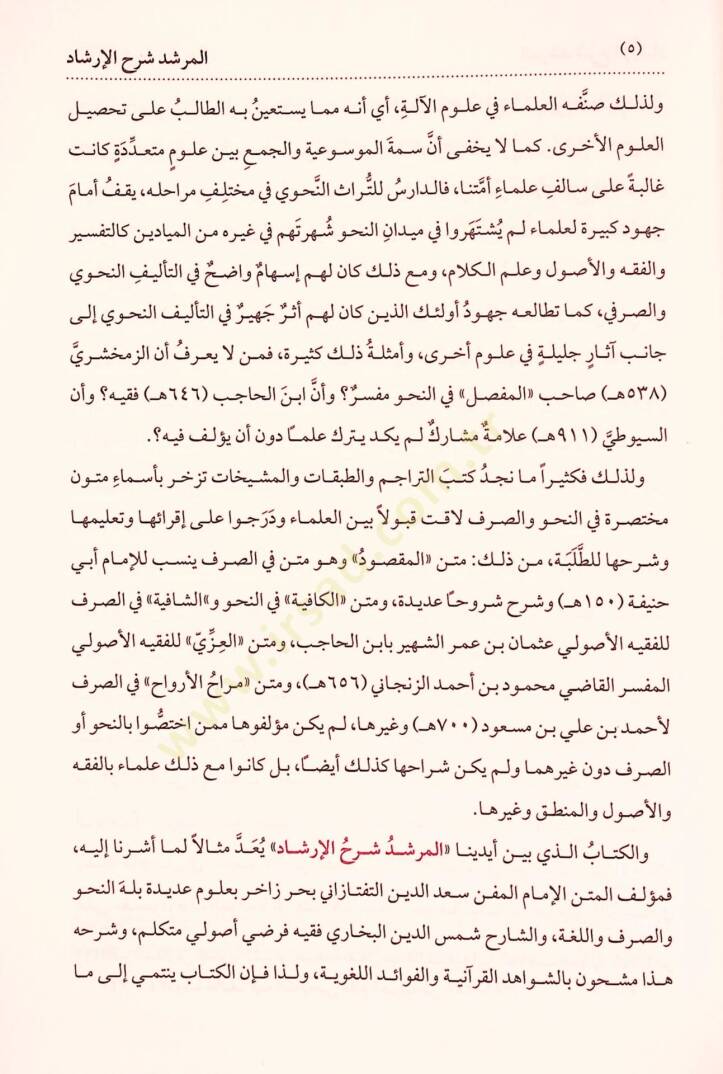 (٥) المرشد شرح الإرشاد
ولذلك صنَّفه العلماء في علوم الآلةِ، أي أنه مما يستعينُ به الطالبُ على تحصيل
العلوم الأخرى. كما لا يخفى أنَّ سمةَ الموسوعية والجمعِ بين علومٍ متعدِّدةٍ كانت
غالبةً على سالفِ علماءِ أمَّتنا، فالدارسُ للتُّراث النَّحوي في مختلِفِ مراحله، يقفُ أمامَ
جهود كبيرة لعلماء لم يُشتَهَروا في ميدانِ النحو شُهرتَهم في غيره من الميادين كالتفسير
والفقه والأصول وعلم الكلام، ومع ذلك كان لهم إسهامٌ واضحٌ في التأليفِ النحوي
والصرفي، كما تطالعه جهودُ أولئك الذين كان لهم أثرٌ جَهيرٌ في التأليف النحوي إلى
جانب آثارٍ جليلةٍ في علوم أخرى، وأمثلةُ ذلك كثيرة، فمن لا يعرفُ أن الزمخشريَّ
(٥٣٨هـ) صاحب «المفصل» في النحو مفسرٌ؟ وأنَّ ابنَ الحاجب (٦٤٦هـ) فقيه؟ وأن
السيوطيَّ (٩١١هـ) علامةٌ مشاركٌ لم يكد يترك علماً دون أن يؤلف فيه؟.
ولذلك فكثيراً ما نجدُ كتبَ التراجم والطبقات والمشيخات تزخر بأسماءِ متون
مختصرة في النحو والصرف لاقت قبولاً بين العلماء ودَرَجوا على إقرائها وتعليمها
وشرحها للطَّلَبَة، من ذلك: متن «المقصودُ» وهو متن في الصرف ينسب للإمام أبي
حنيفة (١٥٠هـ) وشرح شروحاً عديدة، ومتن «الكافية» في النحو و«الشافية» في الصرف
للفقيه الأصولي عثمان بن عمر الشهير بابن الحاجب، ومتن «العِزِّيّ» للفقيه الأصولي
المفسر القاضي محمود بن أحمد الزنجاني (٦٥٦هـ)، ومتن «مراحُ الأرواح» في الصرف
لأحمد بن علي بن مسعود (٧٠٠هـ) وغيرها، لم يكن مؤلفوها ممن اختصُّوا بالنحو أو
الصرف دون غيرهما ولم يكن شراحها كذلك أيضاً، بل كانوا مع ذلك علماء بالفقه
والأصول والمنطق وغيرها.
والكتابُ الذي بين أيدينا «المرشدُ شرحُ الإرشاد» يُعَدَّ مثالاً لما أشرنا إليه،
فمؤلف المتن الإمام المفن سعد الدين التفتازاني بحر زاخر بعلوم عديدة بلهَ النحو
والصرف واللغة، والشارح شمس الدين البخاري فقيه فرضي أصولي متكلم، وشرحه
هذا مشحون بالشواهد القرآنية والفوائد اللغوية، ولذا فإن الكتاب ينتمي إلى ما
www.irsad.com.tr